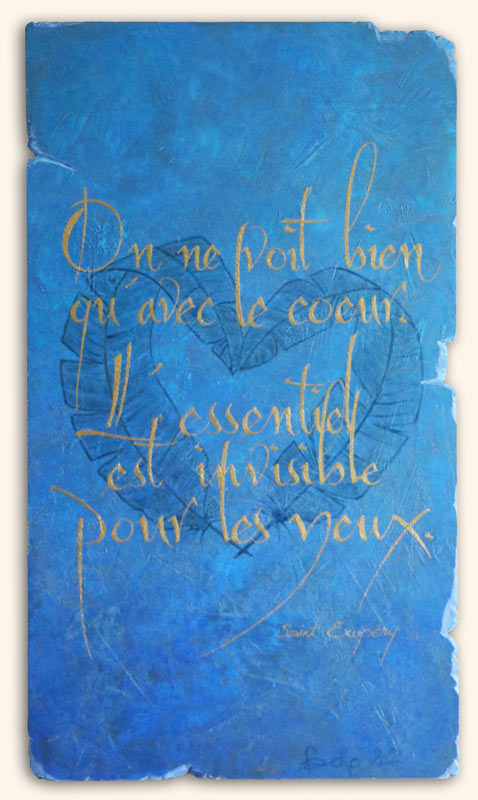 On ne voit bien
qu'avec le coeur.
L'essentiel
est invisible
pour les yeux.
Saint Exupéry